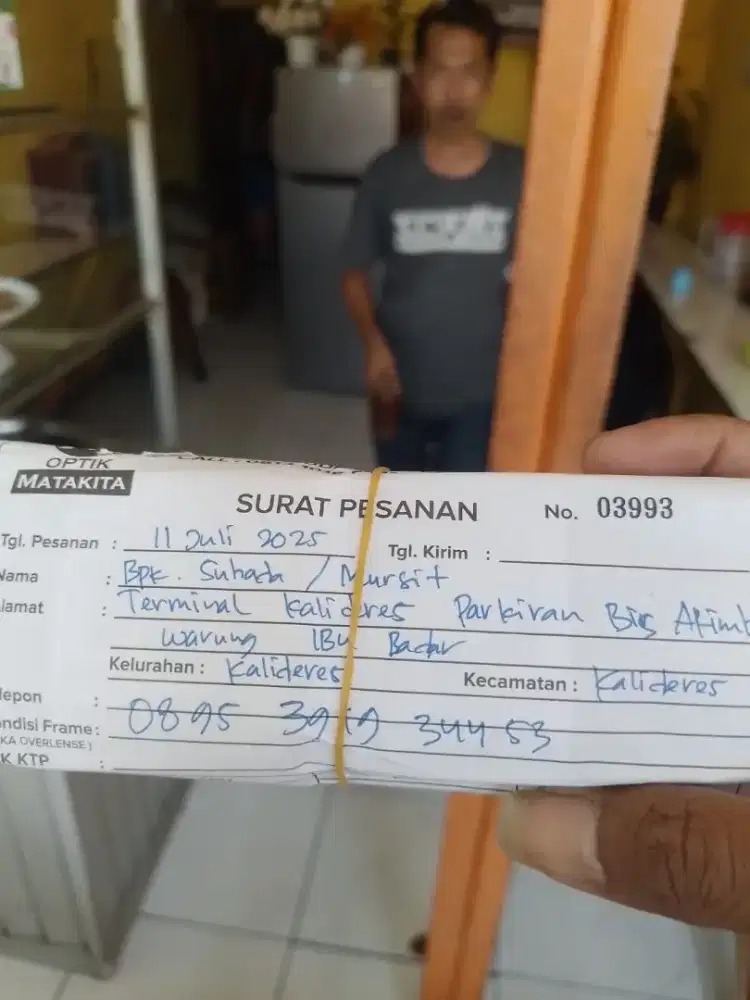 OPTIK
MATAKITA
SURAT PESANAN No. 03993
Tgl. Pesanan : 11 Juli 2025
Tgl. Kirim :
Nama : Bpk. Suhada / Mursit
lamat : Terminal Kalideres Parkiran Bis
Warung IBu Badar
Kelurahan : Kalideres Kecamatan : Kalideres
lepon :
ndisi Frame : 0895 34453
KA OVERLENSE )
K KTP :